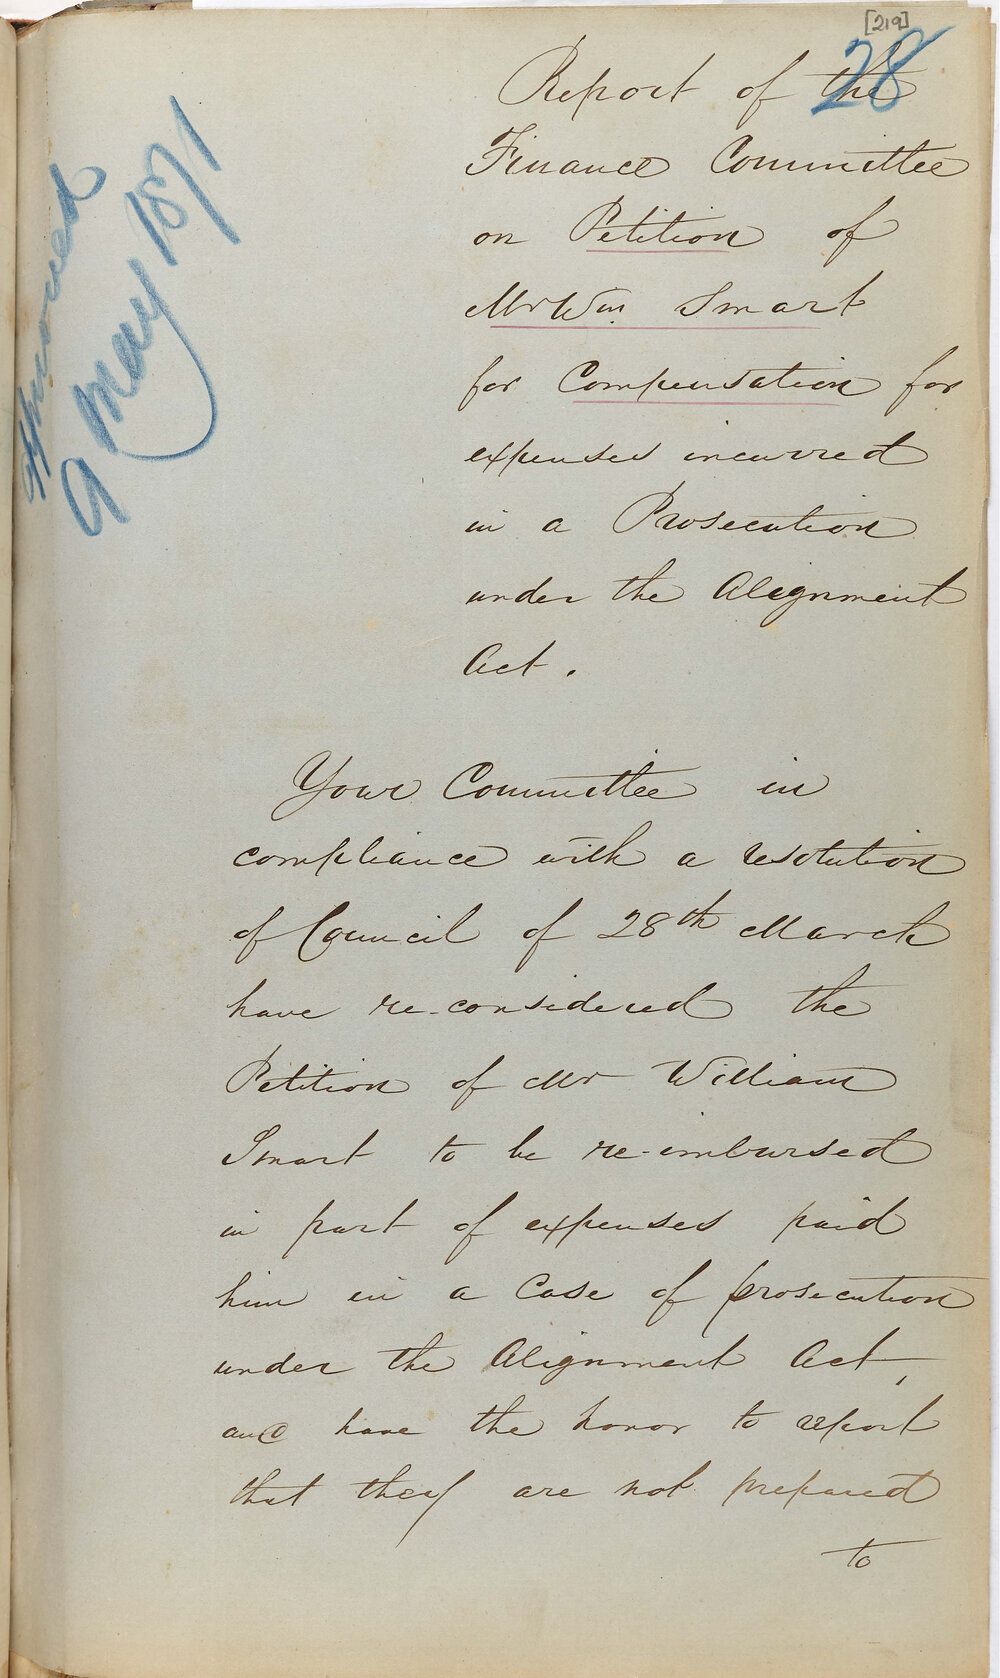 [219]
28
approved
9 May 1871
Report of the
Finance Committee
on Petition of
Mr Wm Smart
for Compensation for
expenses incurred
in a Prosecution
under the Alignment
Act.
Your Committee in
compliance with a resolution
of Council of 28th March
have re-considered the
Petition of Mr William
Smart to be re-imbursed
in part of expenses paid
him in a Case of prosecution
under the Alignment Act,
and have the honor to report
that they are not prepared
to